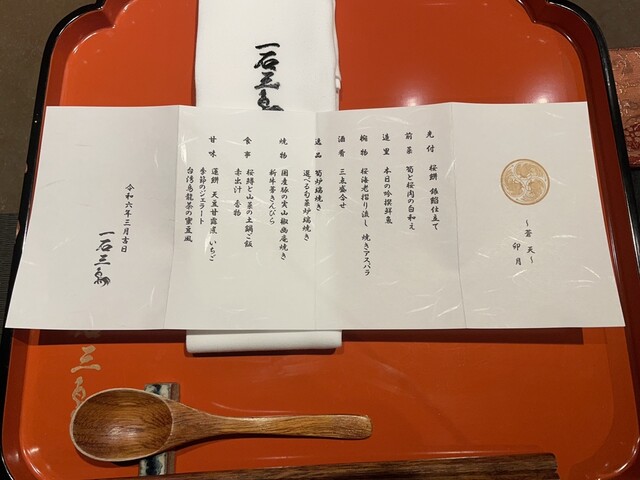 ～蒼天～
卯月
先付 桜餅 銀餡仕立て
前菜 筍と桜肉の白和え
造里 本日の吟撰鮮魚
椀物 桜海老摺り流し 焼きアスパラ
酒肴 三点盛合せ
逸品 筍炉端焼き
選べる旬菜炉端焼き
焼物 国産豚の実山椒幽庵焼き
新牛蒡きんぴら
食事 桜鱒と山菜の土鍋ご飯
赤出汁 香物
甘味 蓮餅 天豆甘露煮 いちご
季節のジェラート
台湾烏龍茶の蜜豆風
令和六年三月吉日
一石三鳥
一石三鳥